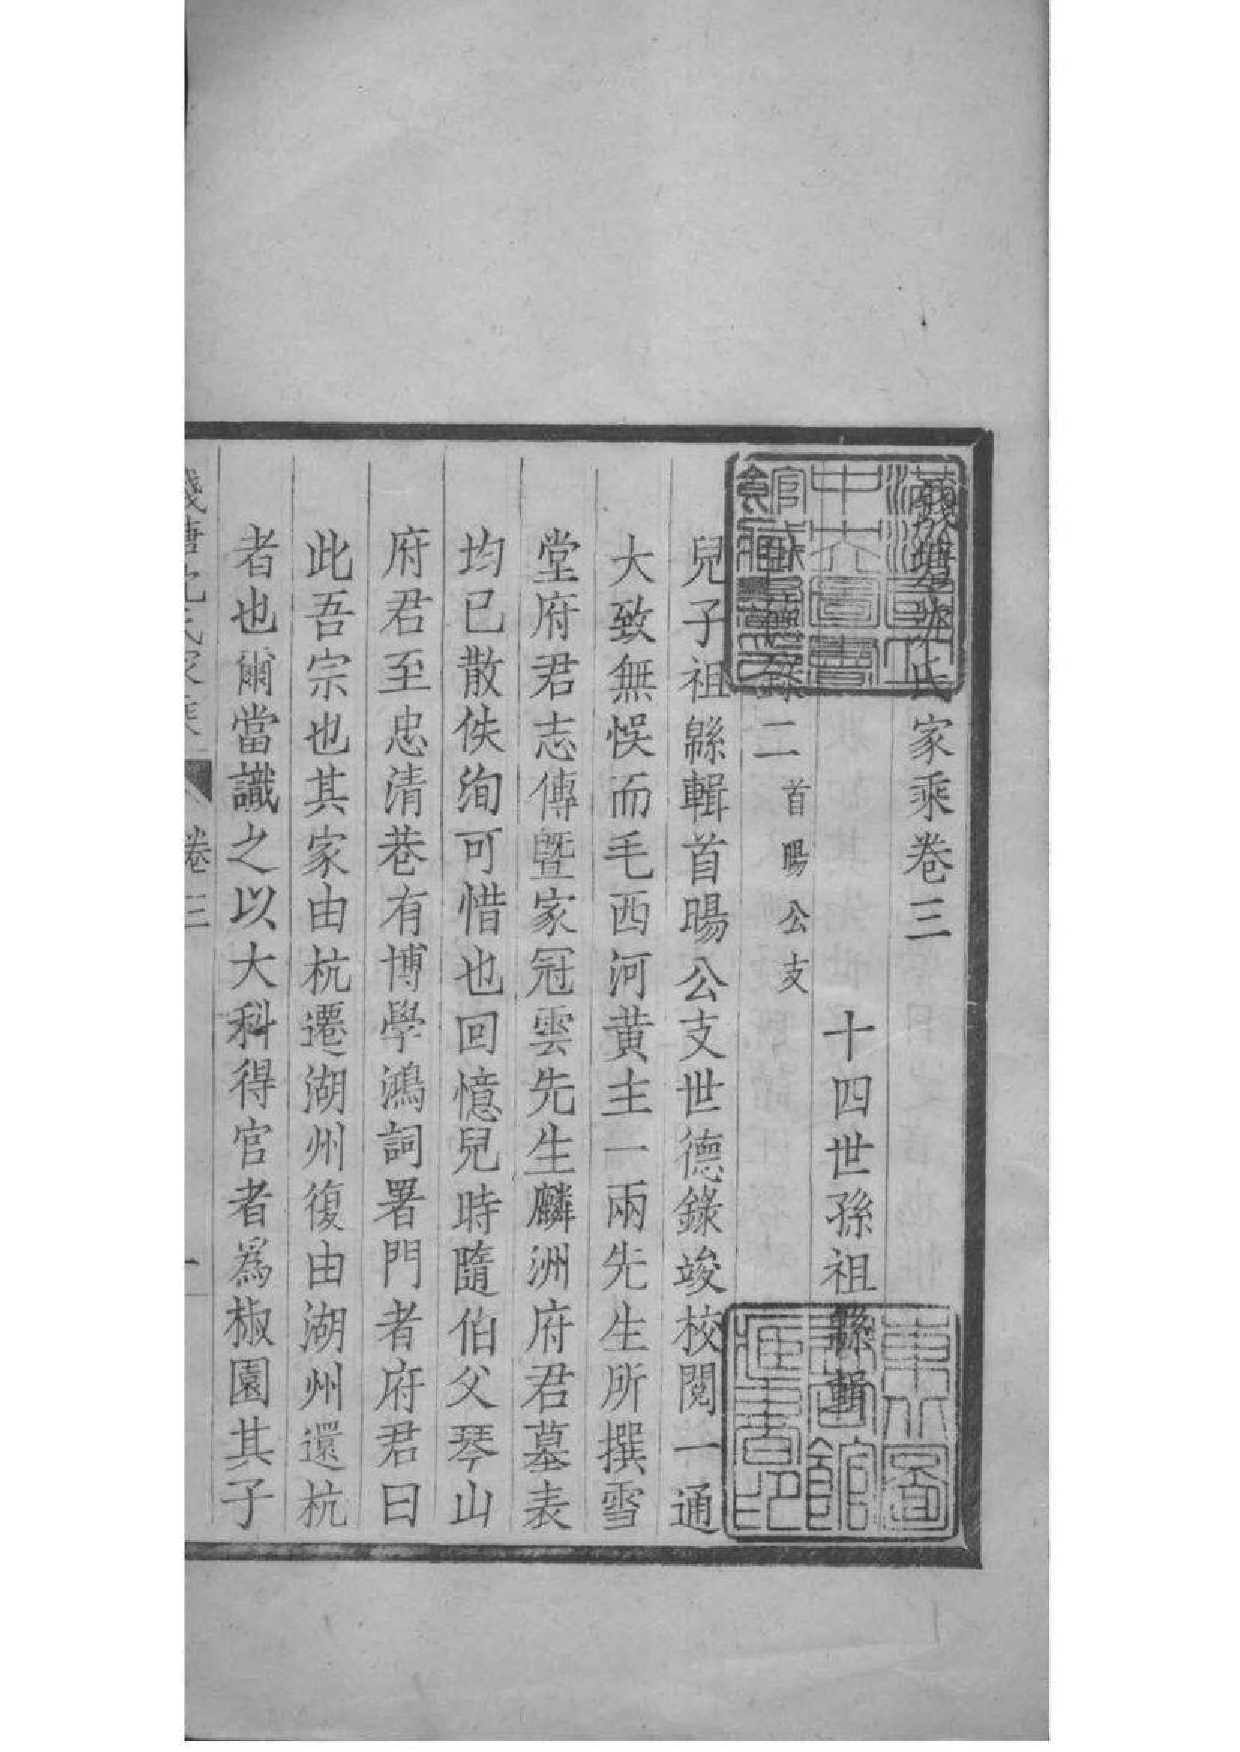 錢塘沈氏家乘卷三
十四世孫祖緜輯
世德錄二首暘公支
兒子祖緜輯首暘公支世德錄竣校閱一通
大致無悞而毛西河黃主一兩先生所撰雪
堂府君志傳曁家冠雲先生麟洲府君墓表
均已散佚洵可惜也回憶兒時隨伯父琴山
府君至忠清巷有博學鴻詞署門者府君曰
此吾宗也其家由杭遷湖州復由湖州還杭
者也爾當識之以大科得官者爲椒園其子
錢塘沈氏家乘
卷三
一